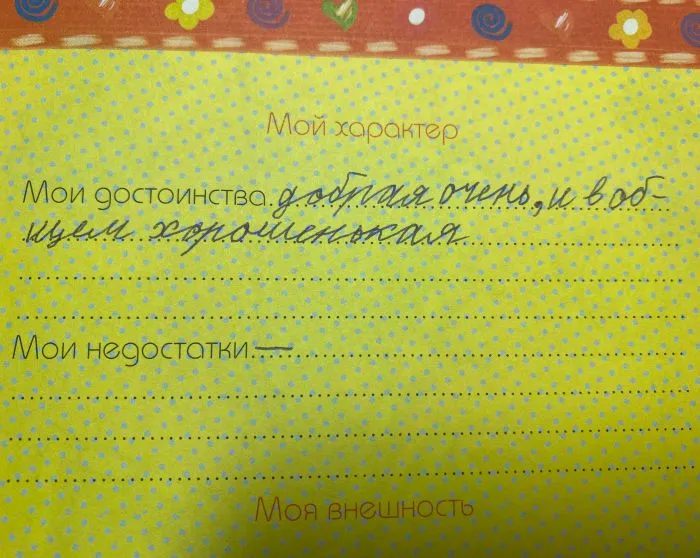 Мой характер
Мои достоинства добрая очень, и в об-
щем хорошенькая
Мои недостатки —
Моя внешность